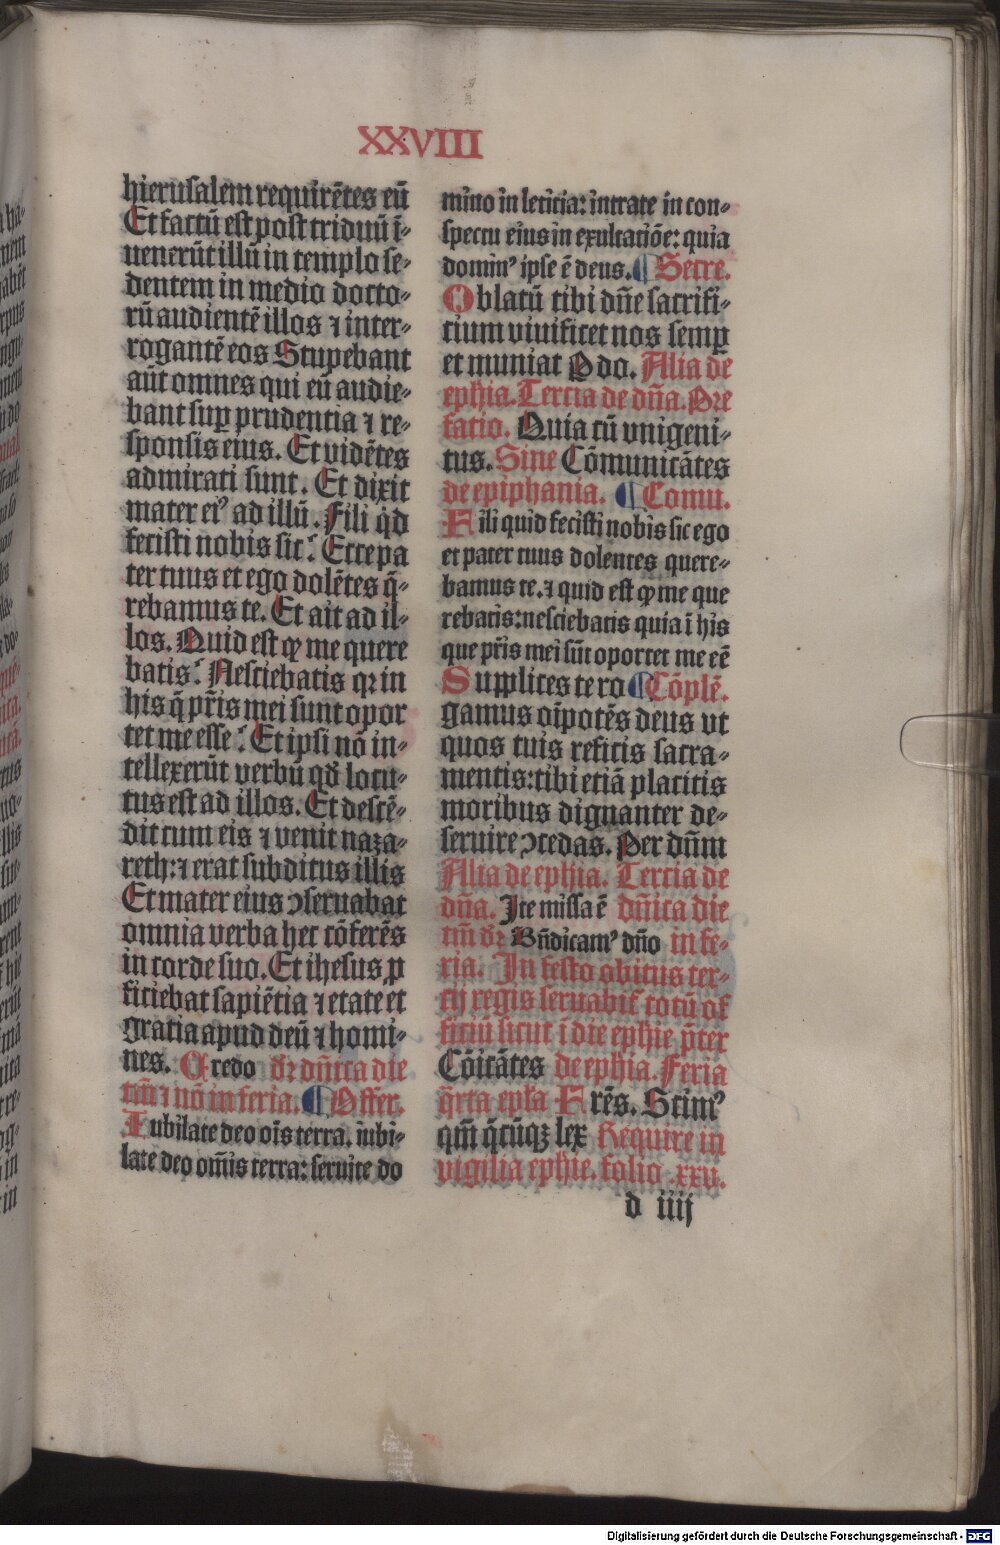 XXVIII
hierusalem requirētes eū
Et factū est post triduū ī-
uenerūt illū in templo se-
dentem in medio docto-
rū audientē illos ⁊ inter-
rogantē eos Stupebant
aūt omnes qui eū audie-
bant suꝑ prudentia ⁊ re-
sponsis eius. Et vidētes
admirati sunt. Et dixit
mater eiꝰ ad illū. Fili qͥd
fecisti nobis sic? Ecce pa
ter tuus et ego dolētes q̄-
rebamus te. Et ait ad il-
los. Quid est ꝙ me quere
batis? Nesciebatis qꝛ in
his q̄ pr̄is mei sunt opor
tet me esse? Et ipsi nō in-
tellexerūt verbū qd̄ locu-
tus est ad illos. Et descē-
dit cum eis ⁊ venit naza-
reth: ⁊ erat subditus illis
Et mater eius ↄseruabat
omnia verba hec cōferēs
in corde suo. Et ihesus ꝓ
ficiebat sapiētia ⁊ etate et
gratia apud deū ⁊ homi-
nes. Credo dꝛ dn̄ica die
tm̄ ⁊ nō in feria. ¶ Offer.
Iubilate deo oīs terra. iubi-
late deo om̄is terra: seruite do
mino in leticia: intrate in con-
spectu eius in exultatiōe: quia
dominꝰ ipse ē deus. ¶ Secre.
Oblatū tibi dn̄e sacrifi-
cium viuificet nos semꝑ
et muniat Pdo. Alia de
eph̄ia. Tercia de dn̄a. Pre
facio. Quia cū vnigeni-
tus. Sine Cōmunicātes
de epiphania. ¶ Comu.
Fili quid fecisti nobis sic ego
et pater tuus dolentes quere-
bamus te. ⁊ quid est ꝙ me que
rebatis: nesciebatis quia ī his
que pr̄is mei sūt oportet me eē
Supplices te ro ¶ Cōplē.
gamus oīpotēs deus vt
quos tuis reficis sacra-
mentis: tibi etiā placitis
moribus dignanter de-
seruire ↄcedas. Per dūm
Alia de eph̄ia. Tercia de
dn̄a. Ite missa ē dn̄ica die
tm̄ dꝛ Bn̄dicamꝰ dn̄o in fe-
ria. In festo obitus ter-
cij regis seruabit̄ totū of
ficiū sicut ī die eph̄ie p̄ter
Cōicātes de eph̄ia. Feria
q̄rta epl̄a Frēs. Scimꝰ
qm̄ q̄cūqꝫ lex Require in
vigilia eph̄ie. folio .xxv.
d iiij
Digitalisierung gefördert durch die Deutsche Forschungsgemeinschaft - DFG